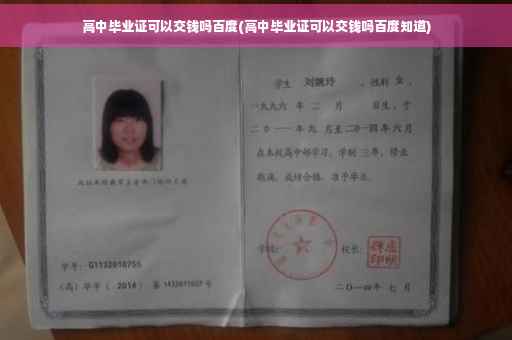 高中毕业证可以交钱吗百度(高中毕业证可以交钱吗百度知道)
学生 刘婉玲 ，性别 女 ，
一九九六 年 二 月 日生，于
二〇一一 年 九 月至 二〇一四 年 六 月
在本校高中部学习，学制 三 年，修业
期满，成绩合格，准予毕业。
学校： 校长：
学号：G1132010755
(高) 毕字 ( 2014 ) 第 1432011027 号
二〇一四年 七 月